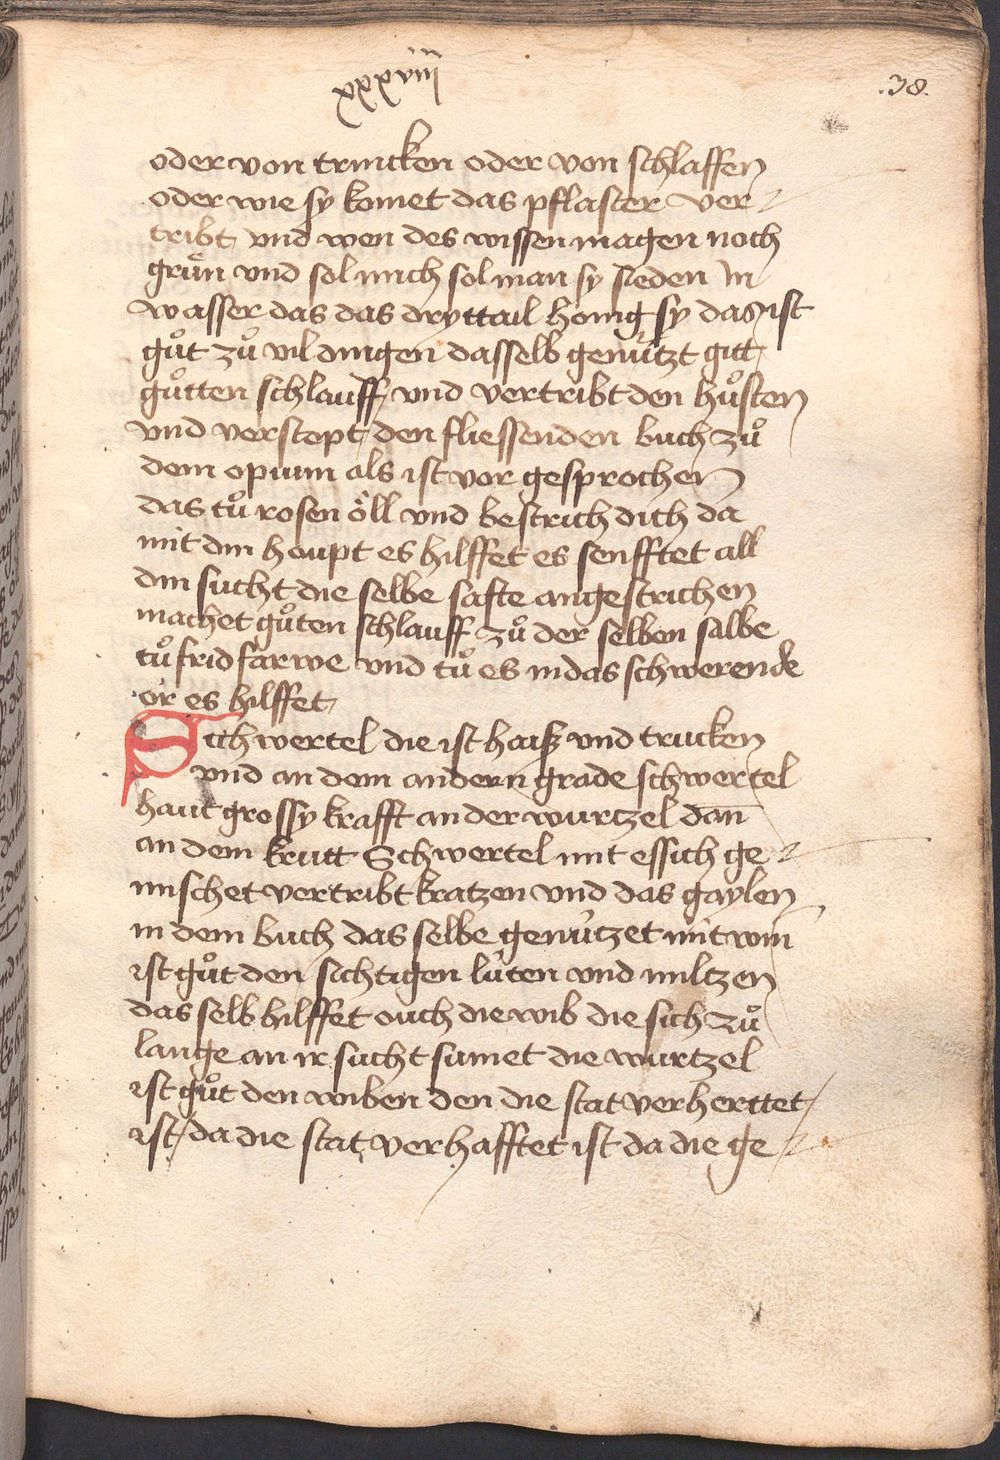 xxxviij
.38.
oder von trincken oder von schlaffen
oder wie sy komet das pflaster ver
tribt vnd wen des wissen magen noch
grůn vnd sol mich sol man sy sieden in
wasser das das dryttail honig sy das ist
gůt zů vil dingen dasselb genützt gitt
gůtten schlauff vnd vertribt den hůsten
vnd verstopt den fliessenden buch zů
dem opium als ist vor gesprochen
das tů rosen öll vnd bestrich dich da
mit din houpt es hilffet es senfftet all
din sucht die selbe safte angestrichen
machet gůten schlauff zů der selben salbe
tů frid farwe vnd tů es in das schwerende
or es hilffet
Sich wertel die ist haiß vnd trucken
vnd an dem andern grade schwertel
haut grossy krafft an der wurtzel dan̄
an dem krutt Schwertel mit essich ge
mischet vertribt kratzen vnd das gaylen
in dem buch das selbe genützet mit win
ist gůt den sichtigen lüten vnd miltzen
das selb hilffet ouch die wib die sich zů
lange an ir sucht sumet die wurtzel
ist gůt den wiben den die stat verherttet
ist da die stat verhafftet ist da die ge